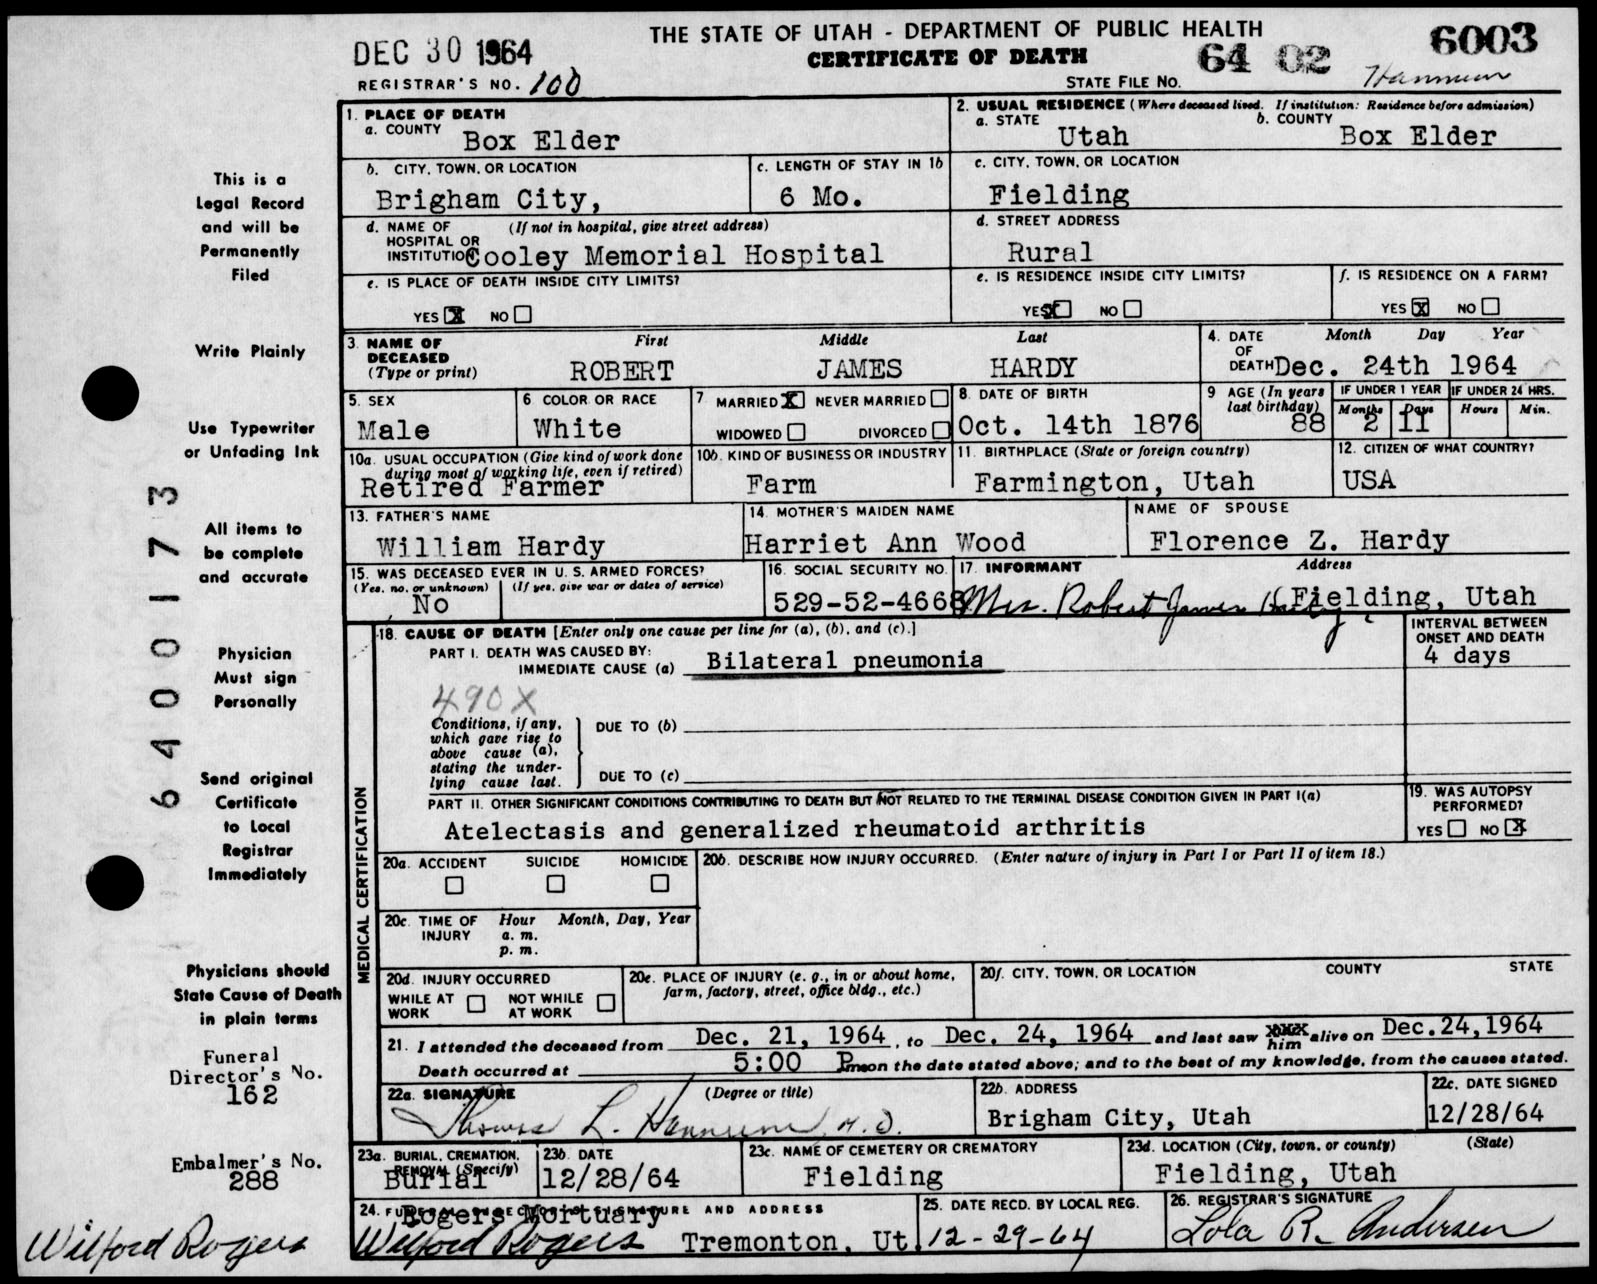 THE STATE OF UTAH - DEPARTMENT OF PUBLIC HEALTH
CERTIFICATE OF DEATH
DEC 30 1964
REGISTRAR'S NO. 100
STATE FILE NO.
64 02
6003
This is a
Legal Record
and will be
Permanently
Filed
Write Plainly
Use Typewriter
or Unfading Ink
All items to
be complete
and accurate
Physician
Must sign
Personally
Send original
Certificate
to Local
Registrar
Immediately
Physicians should
State Cause of Death
in plain terms
Funeral
Director's No.
162
Embalmer's No.
288
Wilford Rogers
64 00173
1. PLACE OF DEATH
a. COUNTY Box Elder
2. USUAL RESIDENCE (Where deceased lived. If institution: Residence before admission)
a. STATE Utah b. COUNTY Box Elder
b. CITY, TOWN, OR LOCATION Brigham City,
c. LENGTH OF STAY IN 1b 6 Mo.
c. CITY, TOWN, OR LOCATION Fielding
d. NAME OF HOSPITAL OR INSTITUTION (If not in hospital, give street address) Cooley Memorial Hospital
d. STREET ADDRESS Rural
e. IS PLACE OF DEATH INSIDE CITY LIMITS?
YES X NO
e. IS RESIDENCE INSIDE CITY LIMITS?
YES X NO
f. IS RESIDENCE ON A FARM?
YES X NO
3. NAME OF DECEASED (Type or print)
First Middle Last
ROBERT JAMES HARDY
4. DATE OF DEATH Month Day Year
Dec. 24th 1964
5. SEX Male
6 COLOR OR RACE White
7 MARRIED X NEVER MARRIED
WIDOWED DIVORCED
8. DATE OF BIRTH Oct. 14th 1876
9 AGE (In years last birthday) 88
IF UNDER 1 YEAR Months 2 Days 11
IF UNDER 24 HRS. Hours Min.
10a. USUAL OCCUPATION (Give kind of work done during most of working life, even if retired)
Retired Farmer
10b. KIND OF BUSINESS OR INDUSTRY Farm
11. BIRTHPLACE (State or foreign country) Farmington, Utah
12. CITIZEN OF WHAT COUNTRY? USA
13. FATHER'S NAME William Hardy
14. MOTHER'S MAIDEN NAME Harriet Ann Wood
NAME OF SPOUSE Florence Z. Hardy
15. WAS DECEASED EVER IN U. S. ARMED FORCES?
(Yes, no, or unknown) (If yes, give war or dates of service)
No
16. SOCIAL SECURITY NO. 529-52-4668
17. INFORMANT Address
Mrs. Robert James Hardy Fielding, Utah
MEDICAL CERTIFICATION
18. CAUSE OF DEATH [Enter only one cause per line for (a), (b), and (c).]
INTERVAL BETWEEN ONSET AND DEATH
PART I. DEATH WAS CAUSED BY:
IMMEDIATE CAUSE (a) Bilateral pneumonia 4 days
490X
Conditions, if any, which gave rise to above cause (a), stating the underlying cause last.
DUE TO (b)
DUE TO (c)
PART II. OTHER SIGNIFICANT CONDITIONS CONTRIBUTING TO DEATH BUT NOT RELATED TO THE TERMINAL DISEASE CONDITION GIVEN IN PART I(a)
Atelectasis and generalized rheumatoid arthritis
19. WAS AUTOPSY PERFORMED?
YES NO X
20a. ACCIDENT SUICIDE HOMICIDE
20b. DESCRIBE HOW INJURY OCCURRED. (Enter nature of injury in Part I or Part II of item 18.)
20c. TIME OF INJURY Hour Month, Day, Year
a. m.
p. m.
20d. INJURY OCCURRED
WHILE AT WORK NOT WHILE AT WORK
20e. PLACE OF INJURY (e. g., in or about home, farm, factory, street, office bldg., etc.)
20f. CITY, TOWN, OR LOCATION COUNTY STATE
21. I attended the deceased from Dec. 21, 1964, to Dec. 24, 1964 and last saw XXX him alive on Dec.24,1964
Death occurred at 5:00 Pm on the date stated above; and to the best of my knowledge, from the causes stated.
22a. SIGNATURE (Degree or title)
Thomas L. M. D.
22b. ADDRESS Brigham City, Utah
22c. DATE SIGNED 12/28/64
23a. BURIAL, CREMATION, REMOVAL (Specify) Burial
23b. DATE 12/28/64
23c. NAME OF CEMETERY OR CREMATORY Fielding
23d. LOCATION (City, town, or county) (State) Fielding, Utah
24. FUNERAL DIRECTOR'S SIGNATURE AND ADDRESS
Rogers Mortuary
Wilford Rogers Tremonton, Ut.
25. DATE RECD. BY LOCAL REG. 12-29-64
26. REGISTRAR'S SIGNATURE
Lola R. Andersen